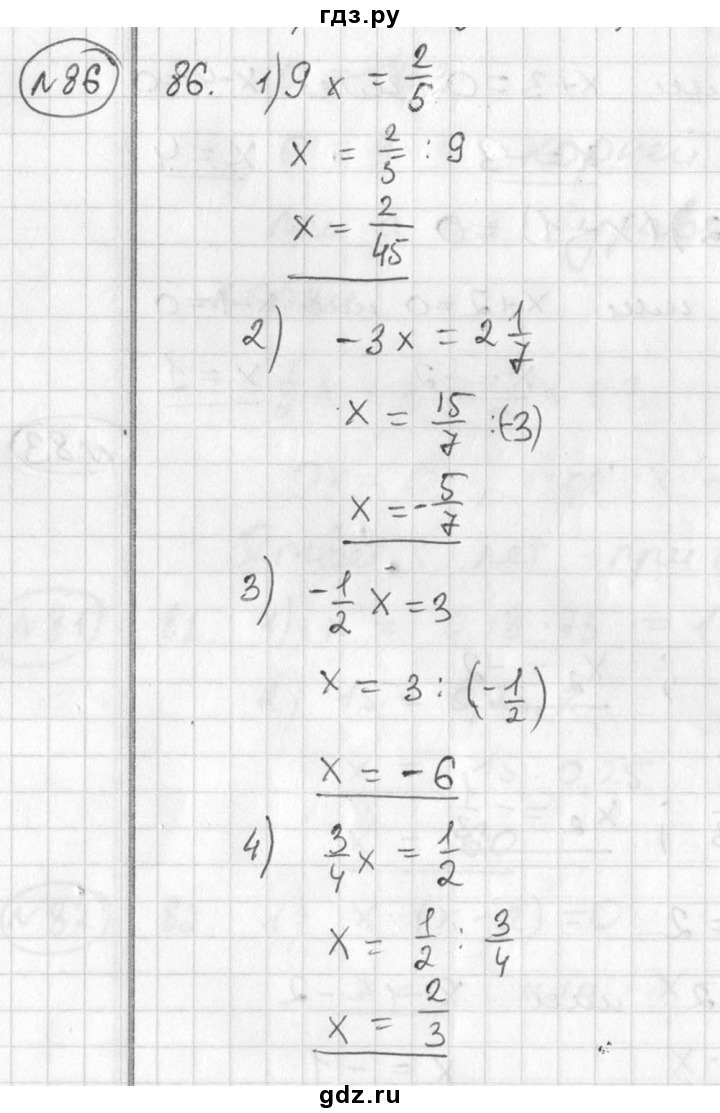 гдз.ру
№86 86. 1) 9x = 2/5
x = 2/5 : 9
x = 2/45
2) -3x = 2 1/7
x = 15/7 : (-3)
x = -5/7
3) -1/2 x = 3
x = 3 : (-1/2)
x = -6
4) 3/4 x = 1/2
x = 1/2 : 3/4
x = 2/3
gdz.ru